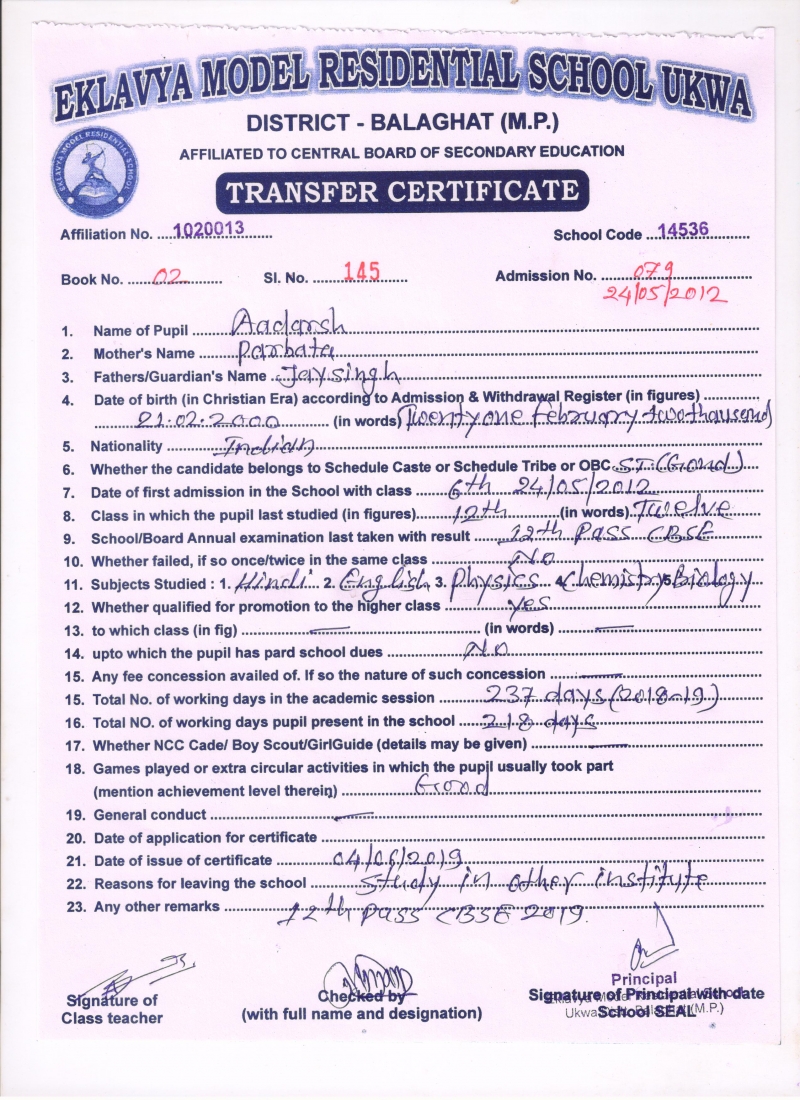 EKLAVYA MODEL RESIDENTIAL SCHOOL UKWA
DISTRICT - BALAGHAT (M.P.)
AFFILIATED TO CENTRAL BOARD OF SECONDARY EDUCATION
EKLAVYA MODEL RESIDENTIAL SCHOOL
TRANSFER CERTIFICATE
Affiliation No. 1020013 School Code 14536
Book No. 02 Sl. No. 145 Admission No. 079
24/05/2012
1. Name of Pupil Aadarsh
2. Mother's Name Parbata
3. Fathers/Guardian's Name Jaysingh
4. Date of birth (in Christian Era) according to Admission & Withdrawal Register (in figures)
21.02.2000 (in words) Twenty one february two thousend
5. Nationality Indian
6. Whether the candidate belongs to Schedule Caste or Schedule Tribe or OBC ST (Gond)
7. Date of first admission in the School with class 6th 24/05/2012
8. Class in which the pupil last studied (in figures) 12th (in words) Twelve
9. School/Board Annual examination last taken with result 12th Pass CBSE
10. Whether failed, if so once/twice in the same class NO
11. Subjects Studied : 1. Hindi 2. English 3. Physics 4. Chemistry 5. Biology
12. Whether qualified for promotion to the higher class yes
13. to which class (in fig) — (in words) —
14. upto which the pupil has pard school dues NO
15. Any fee concession availed of. If so the nature of such concession —
15. Total No. of working days in the academic session 237 days (2018-19)
16. Total NO. of working days pupil present in the school 218 days
17. Whether NCC Cade/ Boy Scout/GirlGuide (details may be given) —
18. Games played or extra circular activities in which the pupil usually took part
(mention achievement level therein) Good
19. General conduct —
20. Date of application for certificate
21. Date of issue of certificate 04/06/2019
22. Reasons for leaving the school study in other institute
23. Any other remarks 12th pass CBSE 2019
Principal
Signature of Checked by Signature of Principal with date
Class teacher (with full name and designation) School SEAL